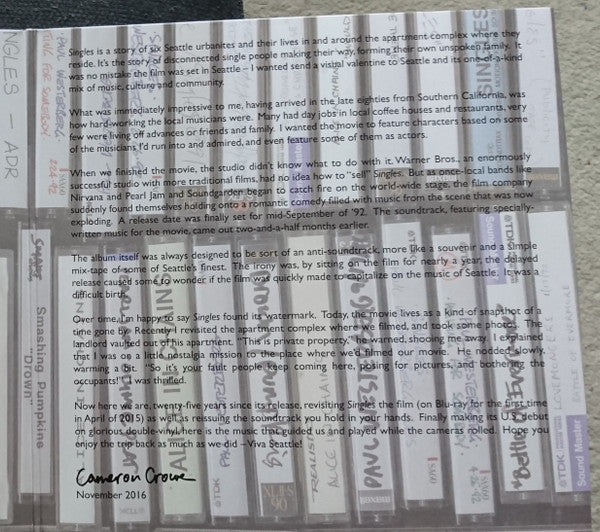 Singles is a story of six Seattle urbanites and their lives in and around the apartment complex where they
reside. It's the story of disconnected single people making their way, forming their own unspoken family. It
was no mistake the film was set in Seattle – I wanted send a visual valentine to Seattle and its one-of-a-kind
mix of music, culture and community.
What was immediately impressive to me, having arrived in the late eighties from Southern California, was
how hard-working the local musicians were. Many had day jobs in local coffee houses and restaurants, very
few were living off advances or friends and family. I wanted the movie to feature characters based on some
of the musicians I'd run into and admired, and even feature some of them as actors.
When we finished the movie, the studio didn't know what to do with it. Warner Bros., an enormously
successful studio with more traditional films, had no idea how to "sell" Singles. But as once-local bands like
Nirvana and Pearl Jam and Soundgarden began to catch fire on the world-wide stage, the film company
suddenly found themselves holding onto a romantic comedy filled with music from the scene that was now
exploding. A release date was finally set for mid-September of '92. The soundtrack, featuring specially-
written music for the movie, came out two-and-a-half months earlier.
The album itself was always designed to be sort of an anti-soundtrack, more like a souvenir and a simple
mix-tape of some of Seattle's finest. The irony was, by sitting on the film for nearly a year, the delayed
release caused some to wonder if the film was quickly made to capitalize on the music of Seattle. It was a
difficult birth.
Over time, I'm happy to say Singles found its watermark. Today, the movie lives as a kind of snapshot of a
time gone by. Recently I revisited the apartment complex where we filmed, and took some photos. The
landlord vaulted out of his apartment. "This is private property," he warned, shooing me away. I explained
that I was on a little nostalgia mission to the place where we'd filmed our movie. He nodded slowly,
warming a bit. "So it's your fault people keep coming here, posing for pictures, and bothering the
occupants!" I was thrilled.
Now here we are, twenty-five years since its release, revisiting Singles the film (on Blu-ray for the first time
in April of 2015) as well as reissuing the soundtrack you hold in your hands. Finally making its U.S. debut
on glorious, double-vinyl, here is the music that guided us and played while the cameras rolled. Hope you
enjoy the trip back as much as we did – Viva Seattle!
Cameron Crowe
November 2016
NGLES — ADR
PAUL WESTERBERG
Smashing Pumpkins
"Drown"
SINGLES
PAUL WESTERBERG
XLII-S
90
maxell
TDK
Sound Master